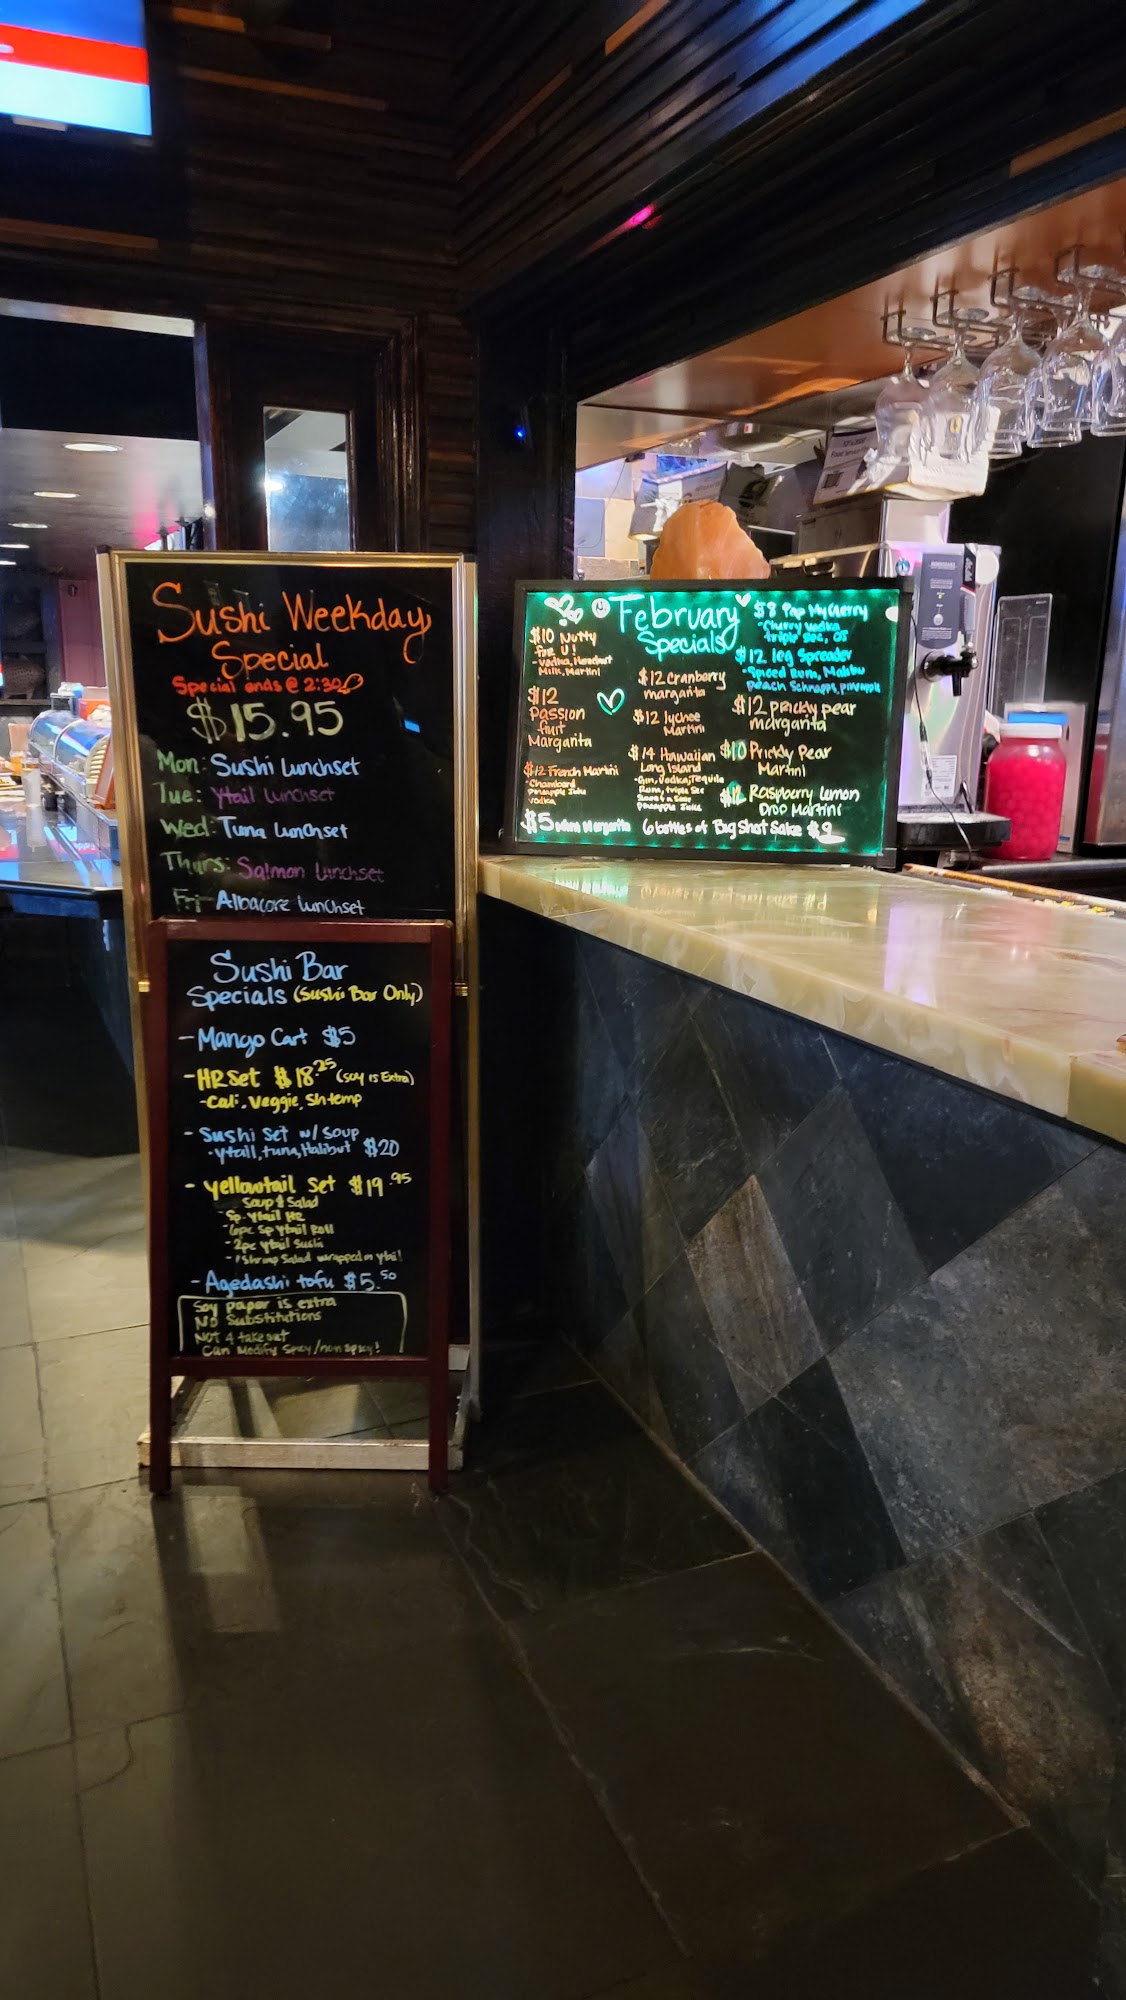 Sushi Weekday
Special
Special ends @ 2:30
$15.95
Mon: Sushi Lunchset
Tue: Ytail Lunchset
Wed: Tuna Lunchset
Thurs: Salmon Lunchset
Fri- Albacore Lunchset
Sushi Bar
Specials (Sushi Bar Only)
- Mango Cart $5
- HR Set $18.25 (soy is Extra)
- Cali, Veggie, Shtemp
- Sushi Set w/ Soup
- ytail, tuna, Halibut $20
- Yellowtail Set $19.95
Soup & Salad
Sp. Ytail HR
- 6pc Sp Ytail Roll
- 2pc Ytail Sushi
- 1 Shrimp Salad wrapped in ytail
- Agedashi tofu $5.50
Soy paper is extra
No Substitutions
NOT 4 take out
Can Modify Spicy/non spicy!
February
Specials
$10 Nutty
for U!
- Vodka, Hazelnut
Milk, Martini
$12
Passion
fruit
Margarita
$12 French Martini
- Chambord
Pineapple Juice
Vodka
$12 Cranberry
margarita
$12 lychee
Martini
$14 Hawaiian
Long Island
- Gin, Vodka, Tequila
Rum, triple Sec
Sweet n Sour
pineapple Juice
$8 Pop My Cherry
- Cherry vodka
triple Sec, OJ
$12 leg Spreader
- Spiced Rum, Malibu
peach Schnapps, pineapple
$12 prickly pear
margarita
$10 Prickly Pear
Martini
$12 Raspberry Lemon
Drop Martini
$5 Margarita 6 bottles of Big Shot Sake $9